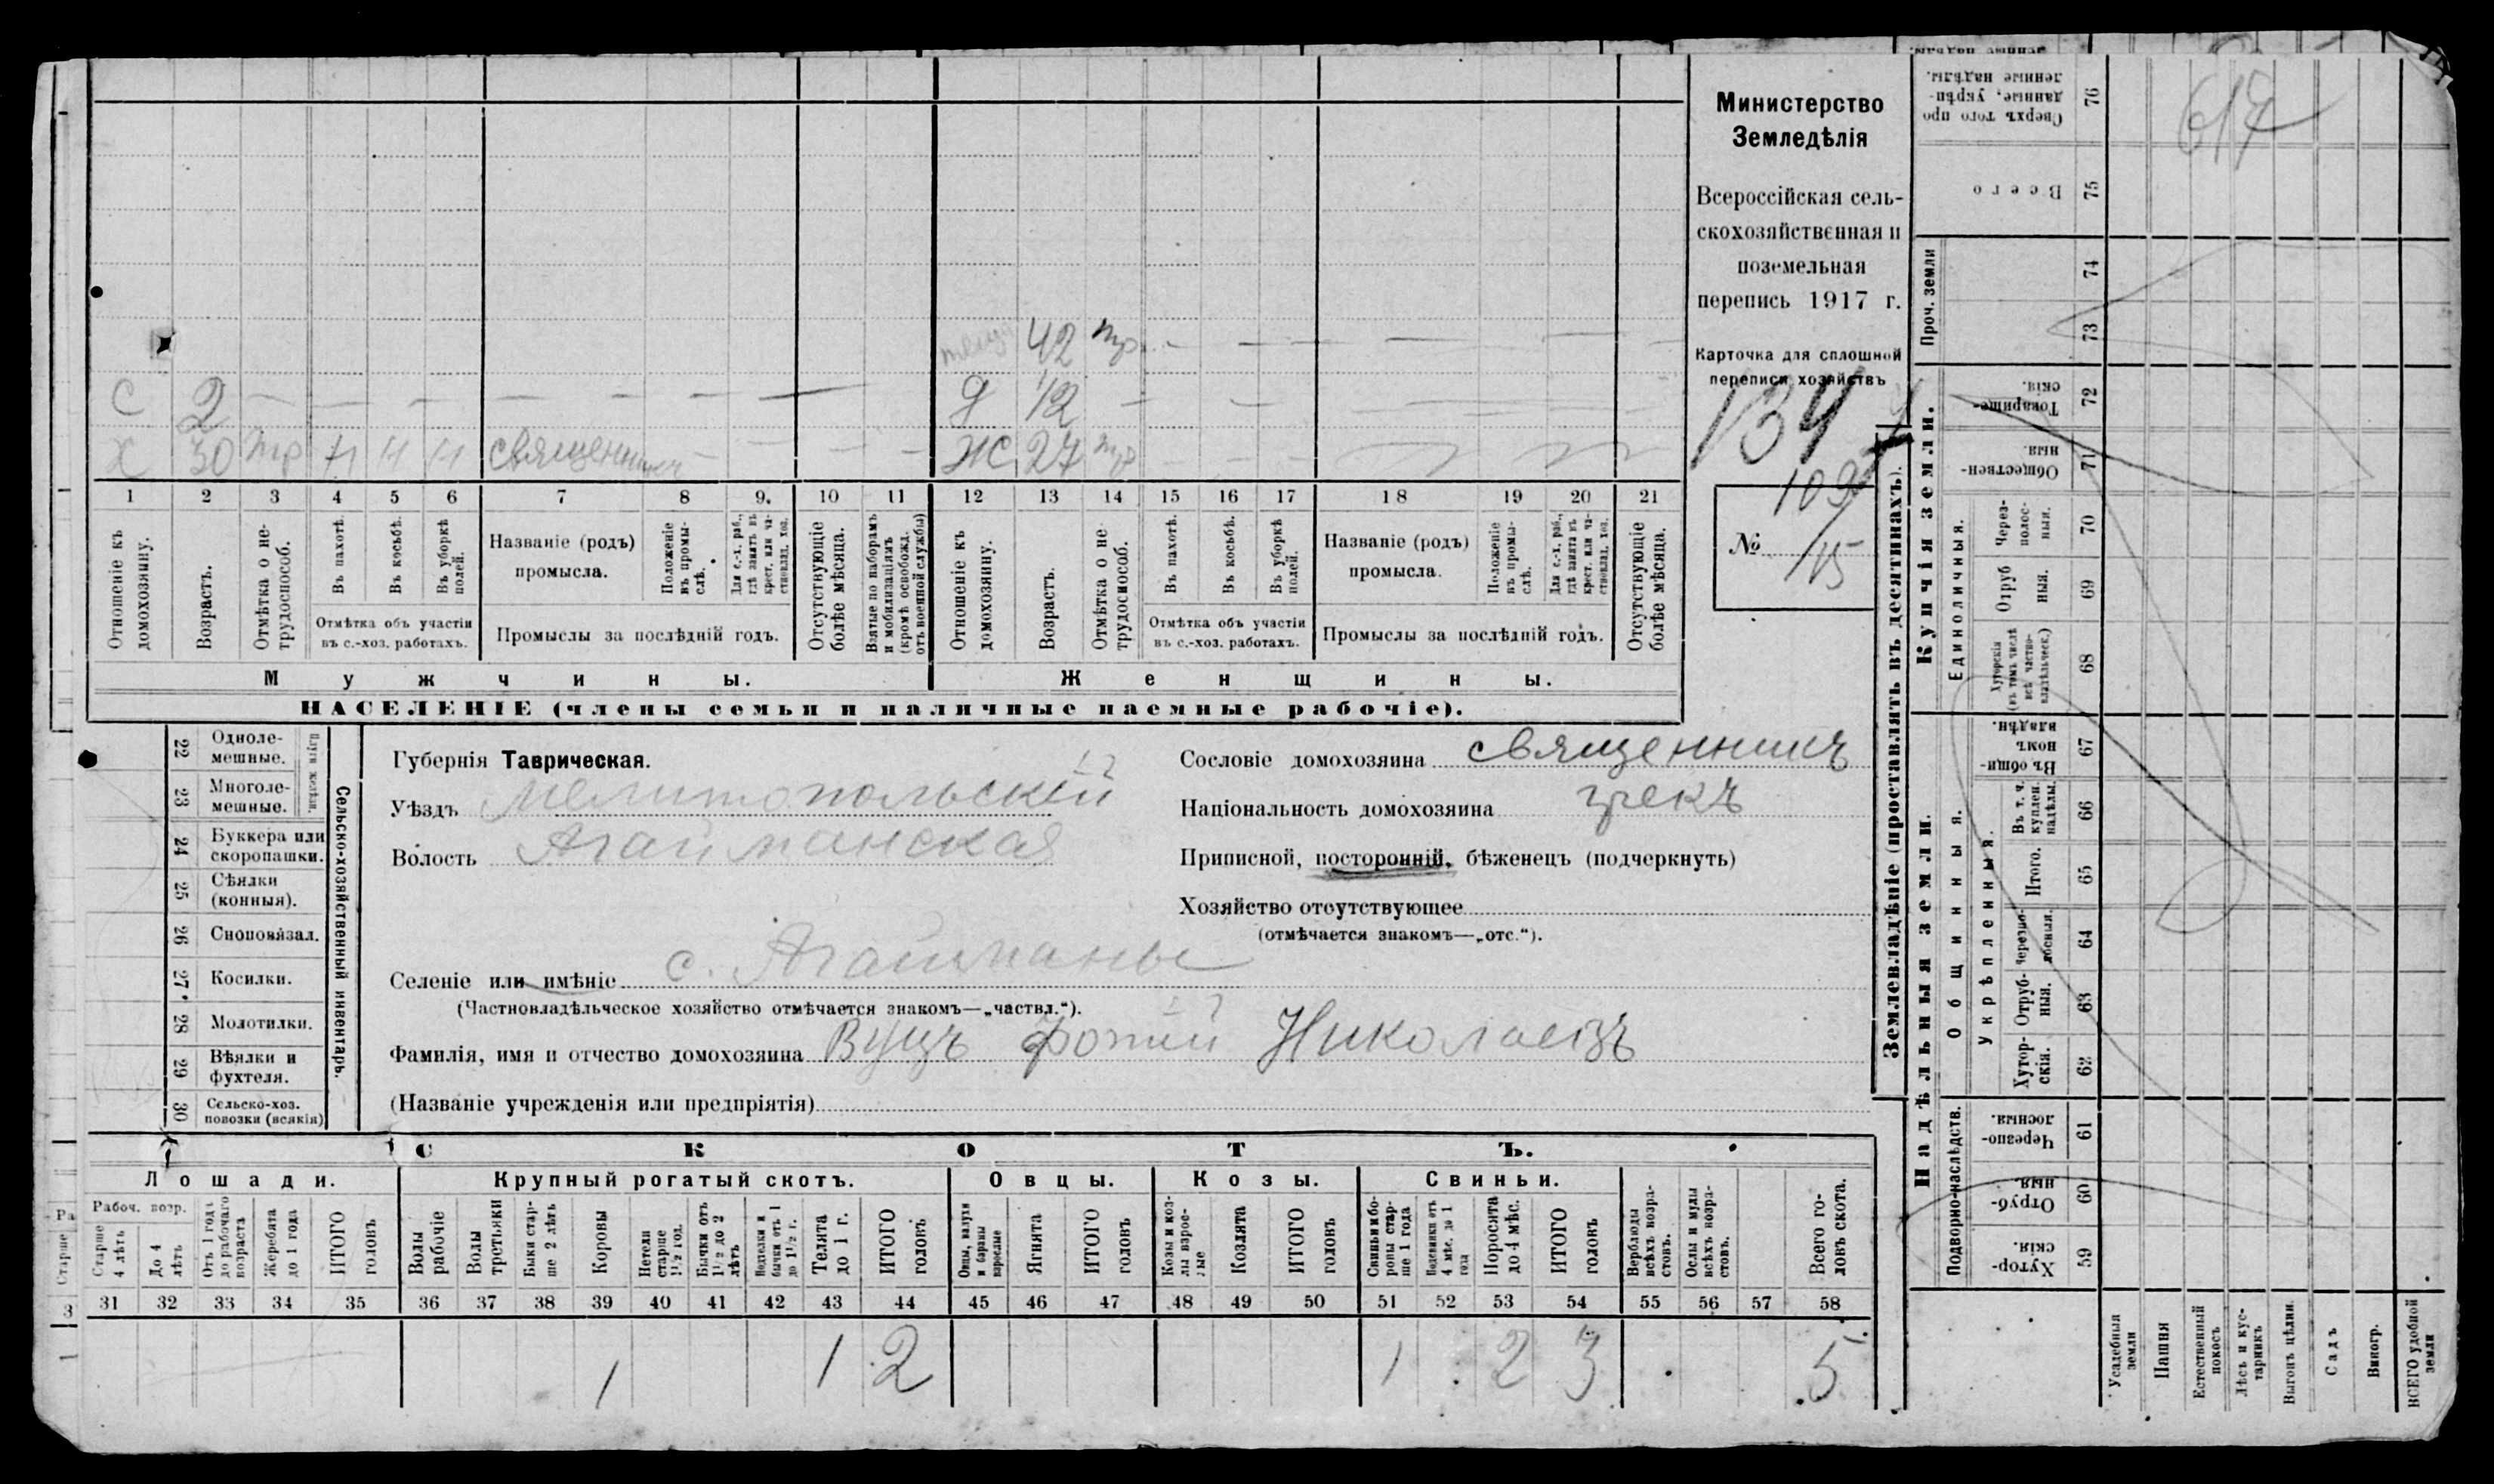 Министерство
Земледѣлія
Всероссійская сель-
скохозяйственная и
поземельная
перепись 1917 г.
Карточка для сплошной
переписи хозяйствъ
134
109
№ 15
617
42 тр.
С 2 — — — — — — — —
Д 1/2
Х 30 тр Н Н Н священникъ
Ж 27 тр
1 2 3 4 5 6 7 8 9. 10 11 12 13 14 15 16 17 18 19 20 21
Отношеніе къ домохозяину.
Возрастъ.
Отмѣтка о не-трудоспособ.
Въ пахотѣ.
Въ косьбѣ.
Въ уборкѣ полей.
Отмѣтка объ участіи
въ с.-хоз. работахъ.
Названіе (родъ)
промысла.
Положеніе въ промы-слѣ.
Для с.-х. раб., гдѣ занятъ въ крест. или ча-стновлад. хоз.
Промыслы за послѣдній годъ.
Отсутствующіе болѣе мѣсяца.
Взятые по наборамъ и мобилизаціямъ (кромѣ освобожд. отъ военной службы)
Отношеніе къ домохозяину.
Возрастъ.
Отмѣтка о не-трудоспособ.
Въ пахотѣ.
Въ косьбѣ.
Въ уборкѣ полей.
Отмѣтка объ участіи
въ с.-хоз. работахъ.
Названіе (родъ)
промысла.
Положеніе въ промы-слѣ.
Для с.-х. раб., гдѣ занята въ крест. или ча-стновлад. хоз.
Промыслы за послѣдній годъ.
Отсутствующіе болѣе мѣсяца.
Мужчины.
Женщины.
НАСЕЛЕНІЕ (члены семьи и наличные наемные рабочіе).
22 Одноле-мешные.
23 Многоле-мешные.
24 Буккера или скоропашки.
25 Сѣялки (конныя).
26 Сноповязал.
27 Косилки.
28 Молотилки.
29 Вѣялки и фухтеля.
30 Сельско-хоз. повозки (всякія)
Сельско-хозяйственный инвентарь.
Губернія Таврическая.
Уѣздъ Мелитопольскій
Волость Агайманская
Селеніе или имѣніе с. Агайманы
(Частновладѣльческое хозяйство отмѣчается знакомъ—„частвл.“).
Фамилія, имя и отчество домохозяина Вуцъ Фотій Николаевъ
(Названіе учрежденія или предпріятія)
Сословіе домохозяина священникъ
Національность домохозяина грекъ
Приписной, посторонній, бѣженецъ (подчеркнуть)
Хозяйство отсутствующее
(отмѣчается знакомъ—„отс.“).
СКОТЪ.
Лошади. Крупный рогатый скотъ. Овцы. Козы. Свиньи.
Рабоч. возр.
Старше 4 лѣтъ
До 4 лѣтъ
Отъ 1 года до рабочаго возраста
Жеребята до 1 года
ИТОГО головъ
Волы рабочіе
Волы третьяки
Быки стар-ше 2 лѣтъ
Коровы
Нетели старше 1½ год.
Бычки отъ 1½ до 2 лѣтъ
бычки отъ 1 до 1½ г.
Телята до 1 г.
ИТОГО головъ
Овцы, валухи и бараны взрослые
Ягнята
ИТОГО головъ
Козы и коз-лы взрос-лые
Козлята
ИТОГО головъ
Свиньи бо-ровы стар-ше 1 года
Подсвинки отъ 4 мѣс. до 1 года
Поросята до 4 мѣс.
ИТОГО головъ
Верблюды всѣхъ возра-стовъ.
Ослы и мулы всѣхъ возра-стовъ.
Всего го-ловъ скота.
31 32 33 34 35 36 37 38 39 40 41 42 43 44 45 46 47 48 49 50 51 52 53 54 55 56 57 58
1 1 2 1 2 3 5
Землевладѣніе (проставлять въ десятинахъ).
Надѣльныя земли.
Купчія земли.
Проч. земли
Подворно-наслѣдств.
Общинныя.
Укрѣпленныя.
Единоличныя.
76 Сверхъ того про данные, укрѣп-ленные надѣлы.
75 Всего
74
73
72 Товарище-скія.
71 Обществен-ныя
70 Через-полос-ныя.
69 Отруб ныя.
68 Хуторскія (въ томъ числѣ всѣ частно-владѣльческ.)
67 Въ общи-номъ владѣн.
66 Въ т. ч. куплен. надѣлы.
65 Итого.
64
63 Отруб-ныя.
62 Хутор-скія.
61 Черезпо-лосныя.
60 Отруб-ныя.
59 Хутор-скія.
Усадебныя земли
Пашня
Естественный покосъ
Лѣсъ и кус-тарникъ
Выгонъ цѣлин.
Садъ
Виногр.
ВСЕГО удобной земли